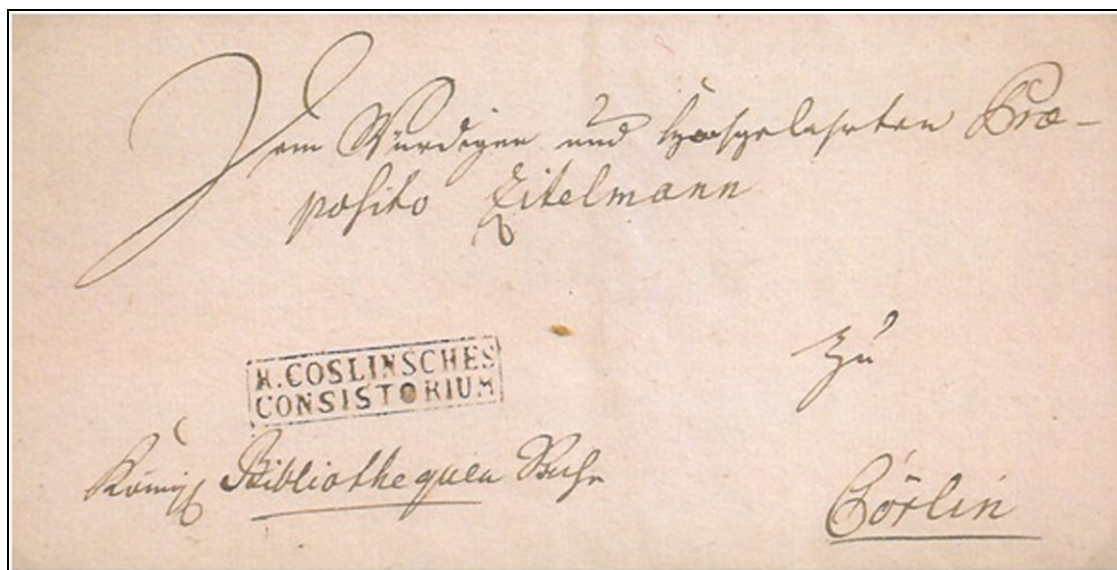 Dem Würdigen und Hochgelahrten Præ-
posito Eitelmann
zu
K. COSLINSCHES
CONSISTORIUM
Königl Bibliothequen Sache
Cörlin